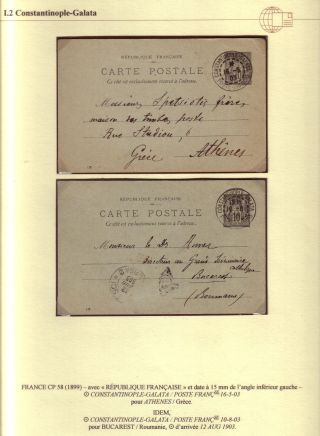 I.2 Constantinople-Galata
RÉPUBLIQUE FRANÇAISE
CARTE POSTALE
Ce côté est exclusivement réservé à l'adresse.
Messieurs Spetsiotis frères,
maison des timbres poste
Rue Stadiou, 6
Grèce Athènes
RÉPUBLIQUE FRANÇAISE
CARTE POSTALE
Ce côté est exclusivement réservé à l'adresse.
Monsieur le Dr
Directeur du Grand Séminaire
Bucarest
(Roumanie)
FRANCE CP 58 (1899) – avec « RÉPUBLIQUE FRANÇAISE » et date à 15 mm de l'angle inférieur gauche -
CONSTANTINOPLE-GALATA / POSTE FRANÇ 16-5-03
pour ATHENES / Grèce.
IDEM,
CONSTANTINOPLE-GALATA / POSTE FRANÇ 10-8-03
pour BUCAREST / Roumanie, d'arrivée 12 AUG 1903.